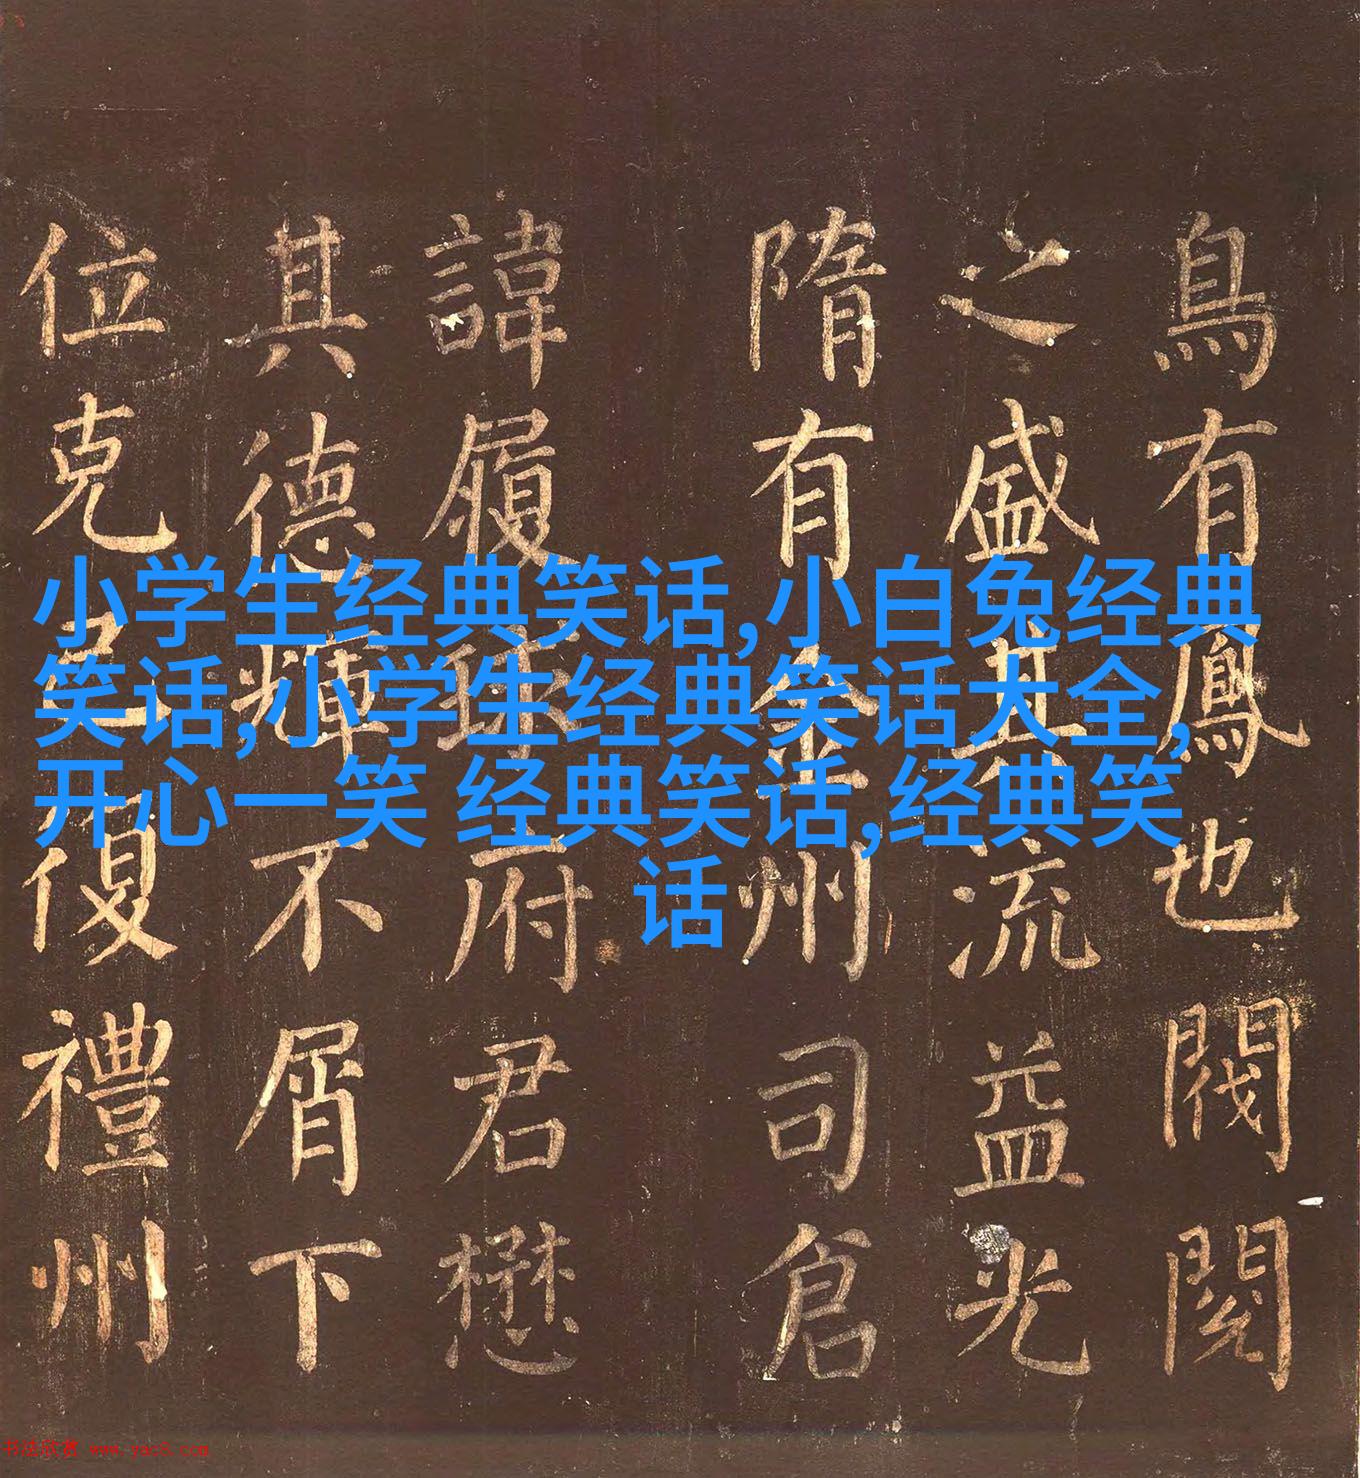 鳥有鳳也閥閱
之盛其流益光
隋有金州司倉
諱履球府君懋
其德輝不屑下
位克己復禮州
小学生经典笑话,小白兔经典
笑话,小学生经典笑话大全,
开心一笑 经典笑话,经典笑
话
书法欣赏 www.yac8.com